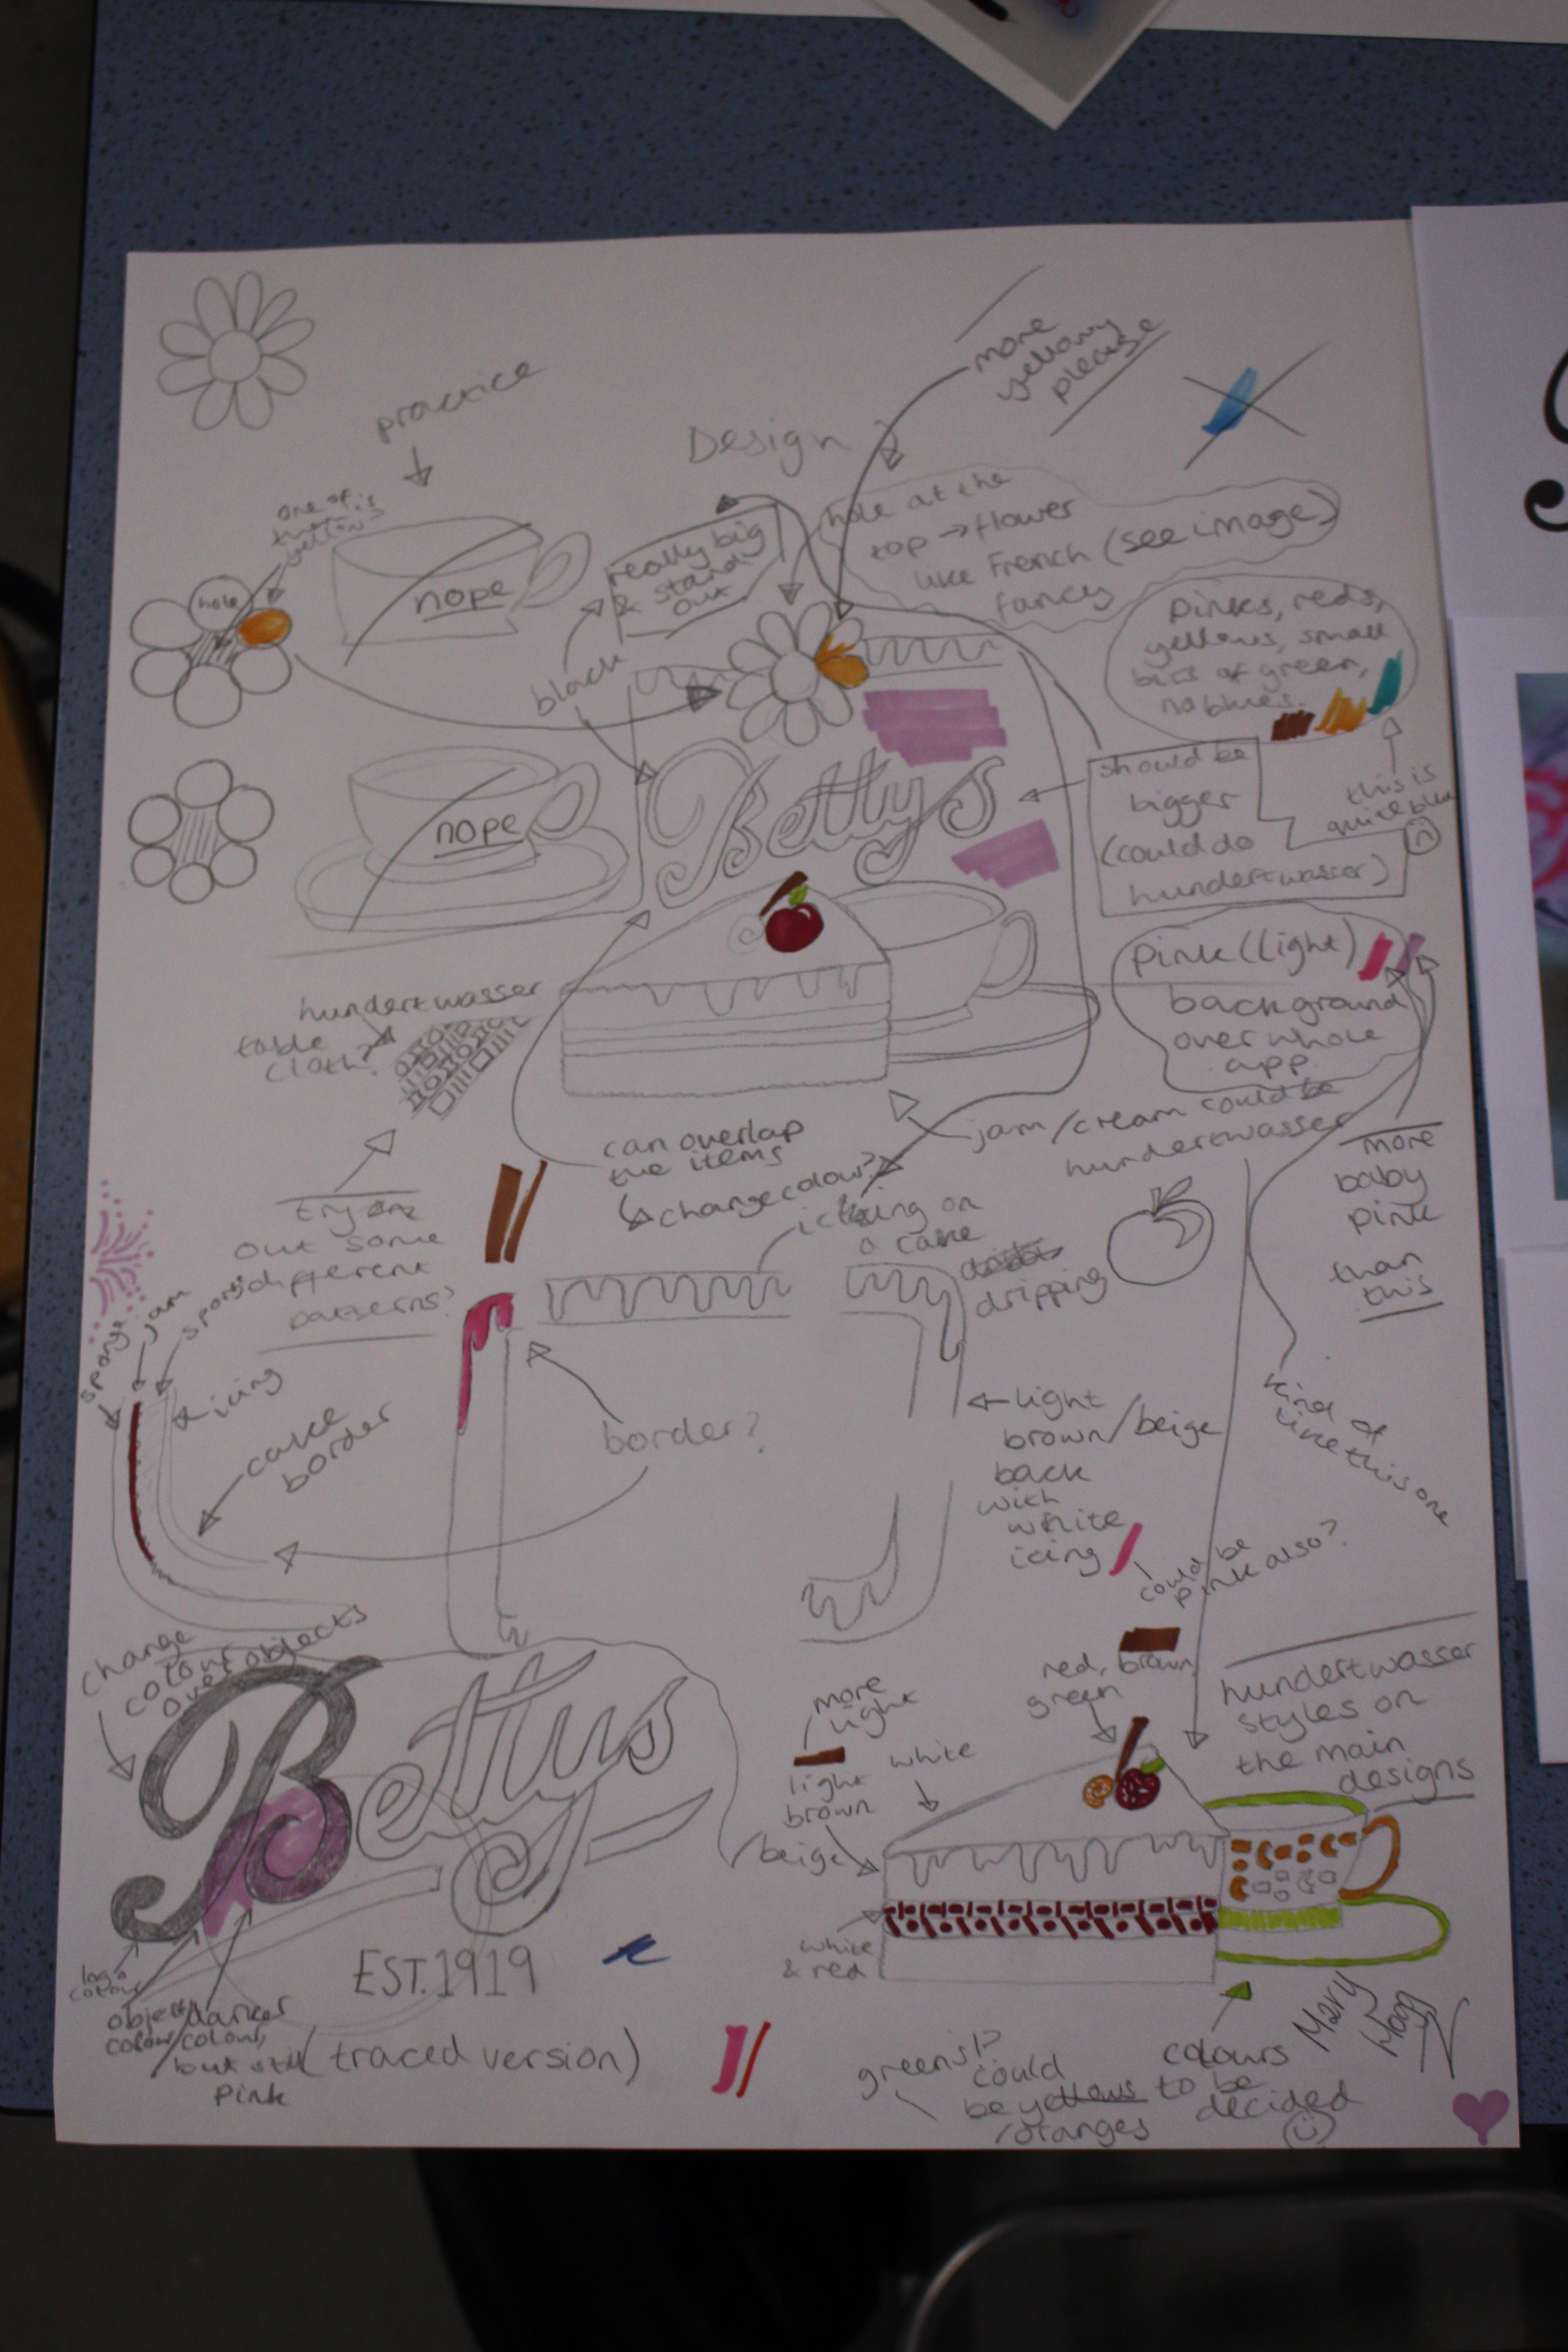 more
yellowy
please
practice
Design
one of
yellow?
hole
nope
really big
& stand
out
hole at the
top → flower
like French (see image)
fancy
black
pinks, reds,
yellows, small
bits of green,
no blues.
nope
Bettys
should be
bigger
(could do
hundertwasser)
this is
quite blue
pink (light)
background
over whole
app.
hundertwasser
table
cloth?
can overlap
the items
change colour?
jam/cream could be
hundertwasser
more
baby
pink
than
this
try
out some
different
patterns?
icing on
a cake
dripping
sponge
jam
sponge
icing
cake
border
border?
light
brown/beige
back
with
white
icing
could be
pink also?
kind of
like this one
change
colour
over objects
Bettys
EST. 1919
(traced version)
logo
colour
object
colour/
darker
colour,
but still
pink
more
light
light
brown
/beige
white
red, brown,
green
hundertwasser
styles on
the main
designs
white
& red
greens!?
could
be yellows
/oranges
colours
to be
decided
Mary
Hogg